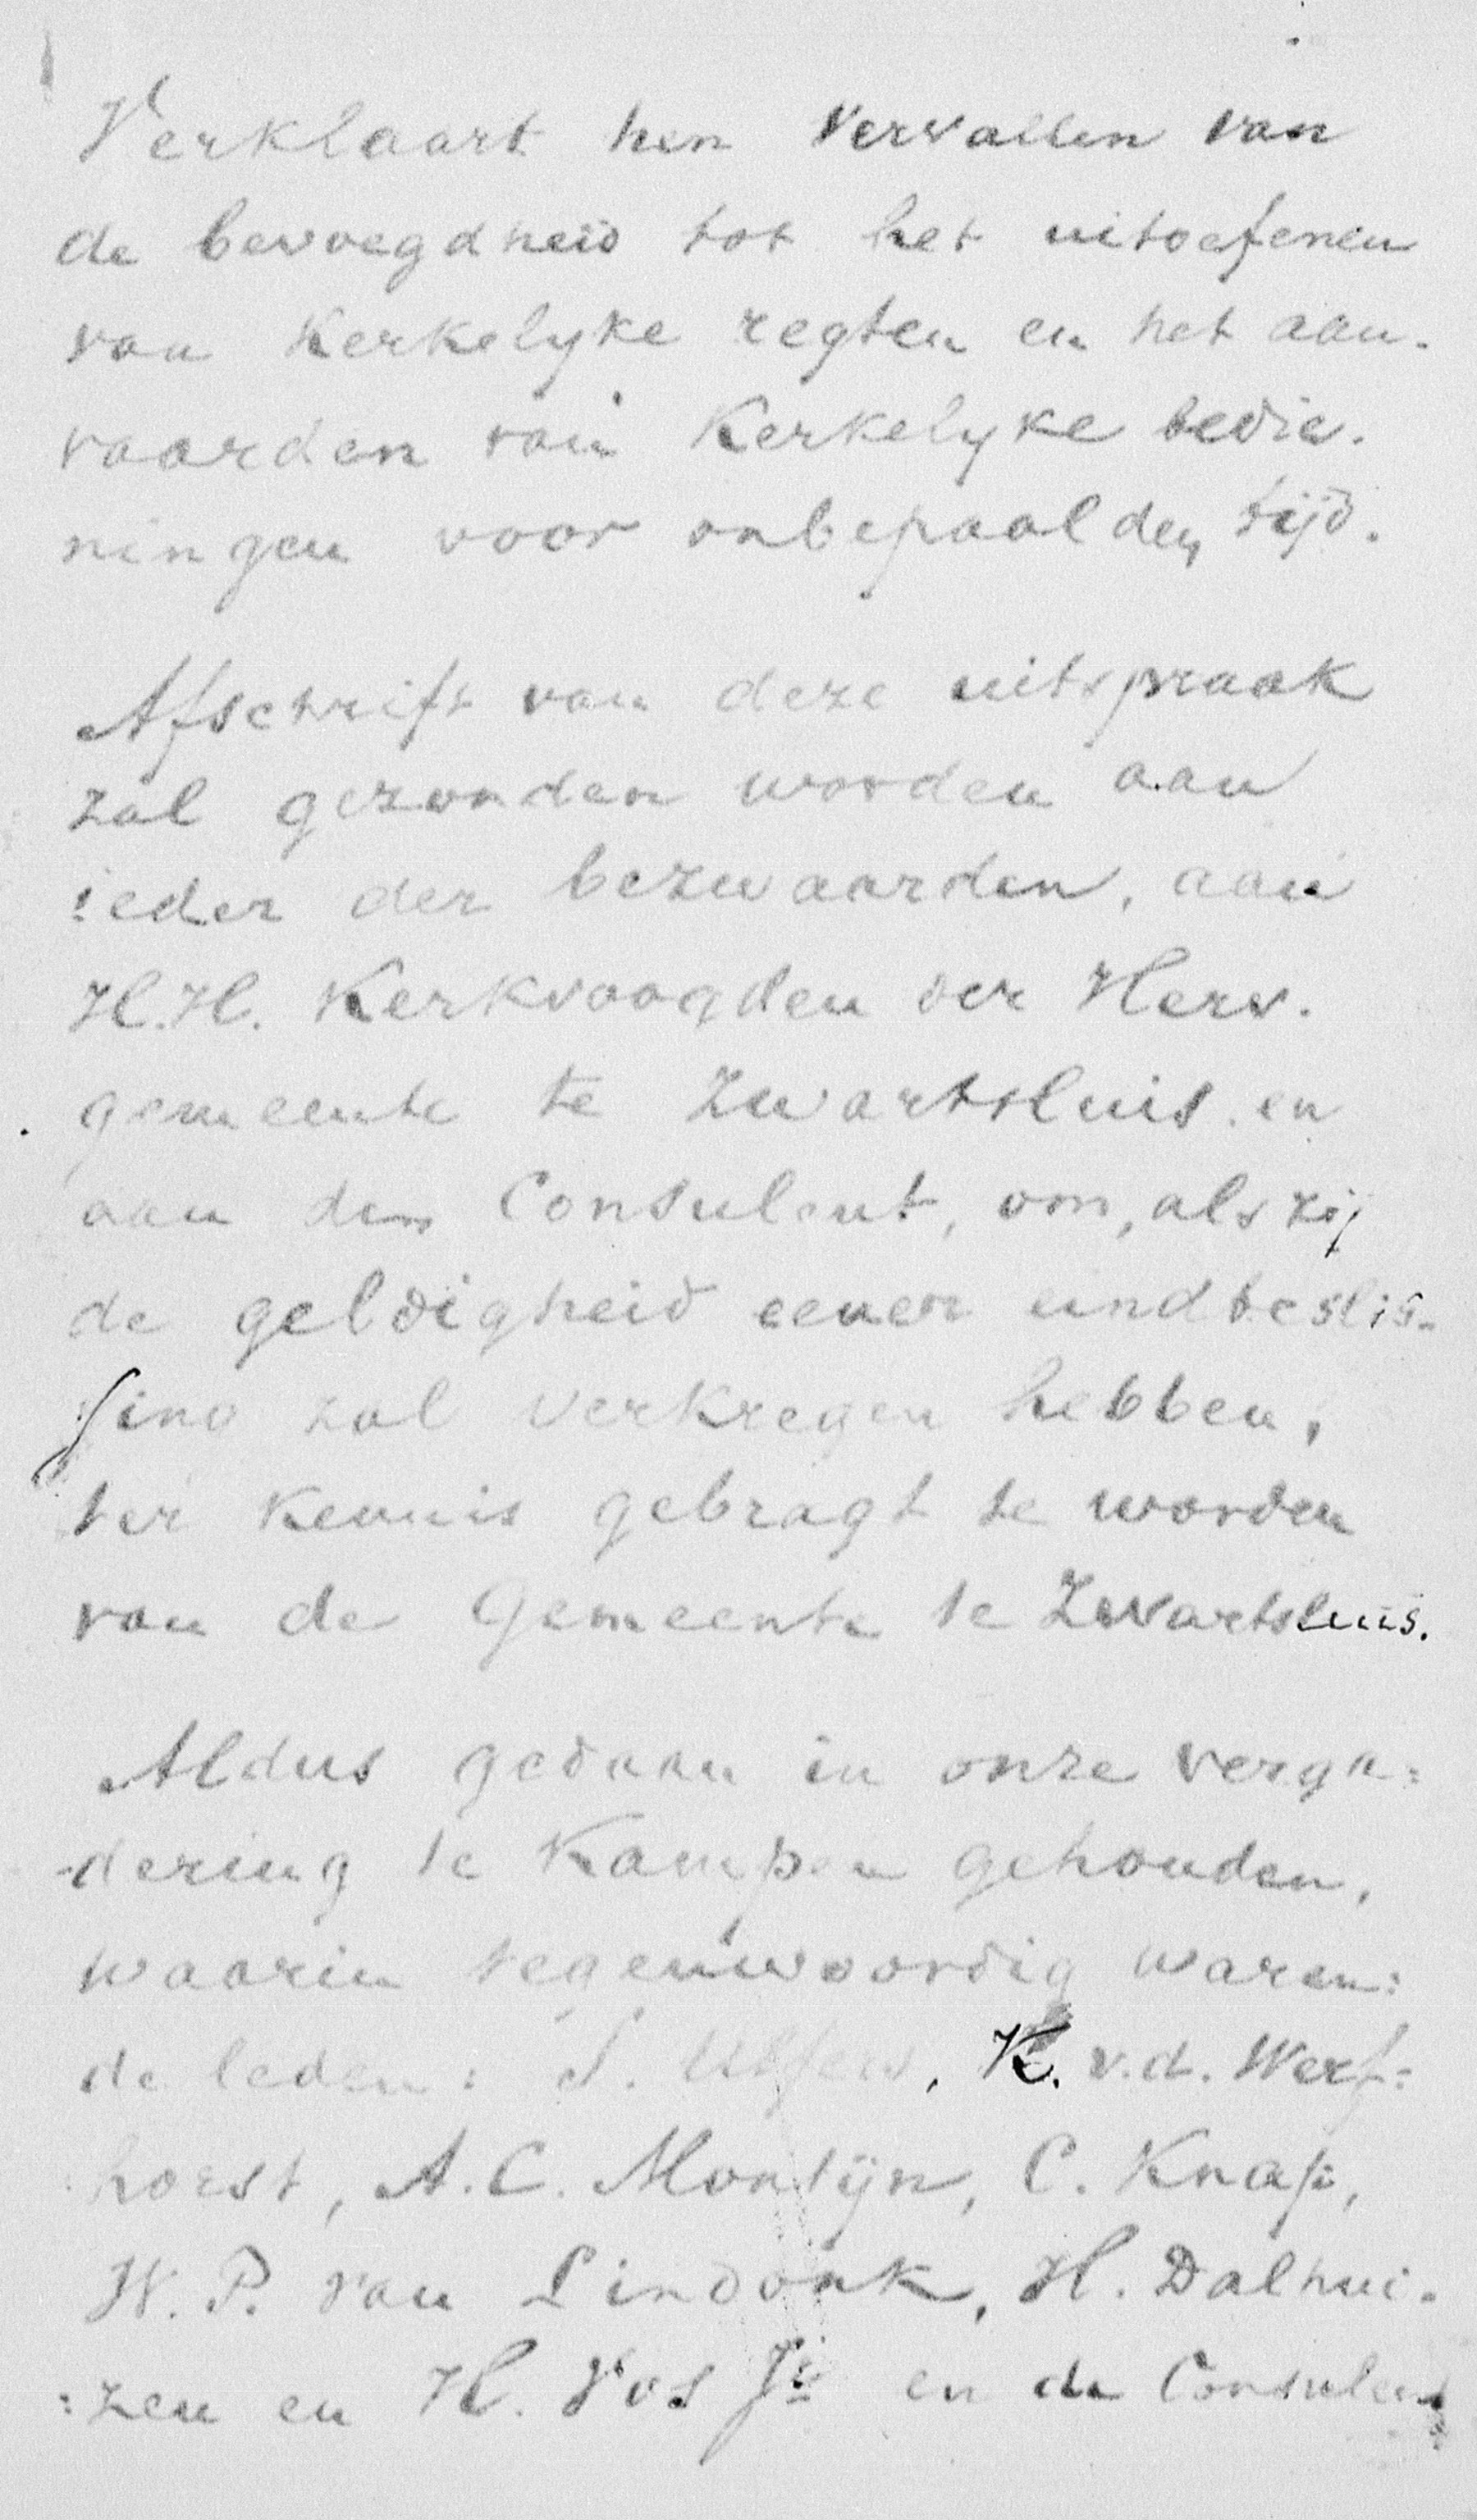 Verklaart hen vervallen van
de bevoegdheid tot het uitoefenen
van Kerkelyke regten en het aan-
vaarden van Kerkelyke bedie-
ningen voor onbepaalden tijd.
Afschrift van deze uitspraak
zal gezonden worden aan
ieder der bezwaarden, aan
H.H. Kerkvoogden der Herv.
gemeente te Zwartsluis en
aan den Consulent, om, als zij
de geldigheid eener eindbeslis-
sing zal verkregen hebben,
ter kennis gebragt te worden
van de Gemeente te Zwartsluis.
Aldus gedaan in onze verga=
-dering te Kampen gehouden,
waarin tegenwoordig waren:
de leden: S. , K. v.d. Werf=
horst, A. C. Montijn, C. Knap,
W. P. van Lindonk, H. Dalhui-
=zen en H. Vos Jr en de Consulent